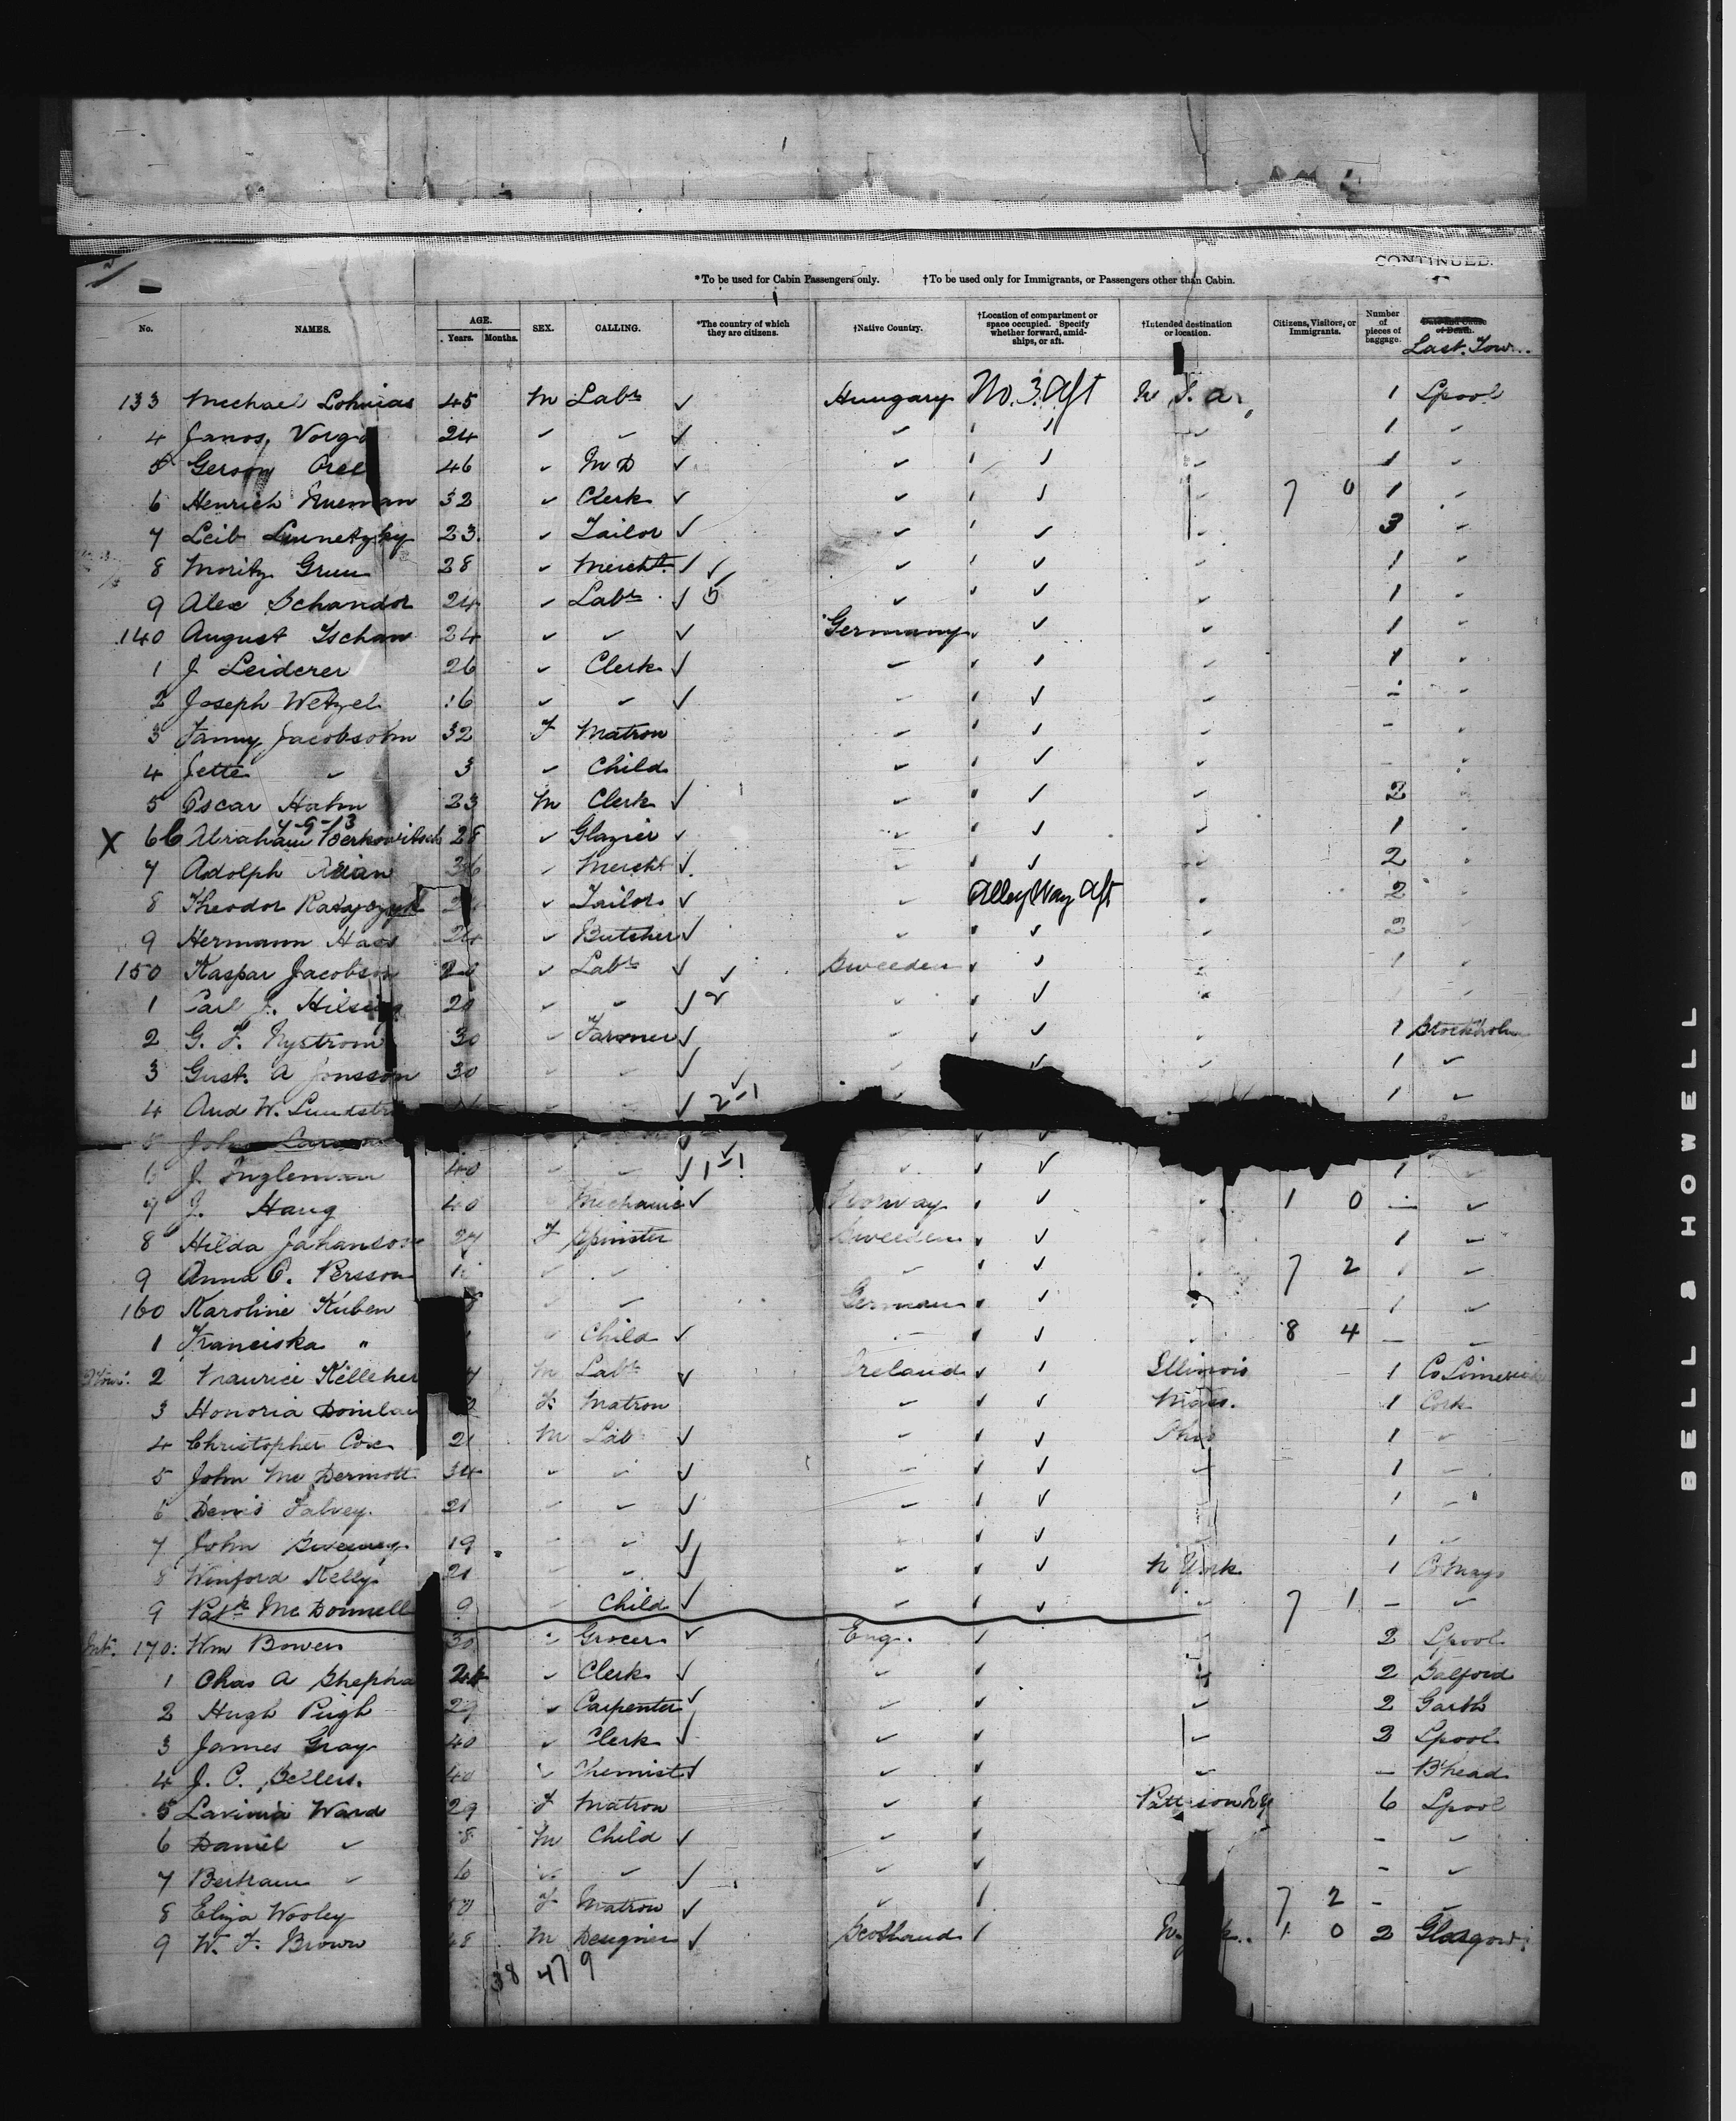 CONTINUED.
*To be used for Cabin Passengers only. †To be used only for Immigrants, or Passengers other than Cabin.
No. NAMES. AGE. Years. Months. SEX. CALLING. *The country of which they are citizens. †Native Country. †Location of compartment or space occupied. Specify whether forward, amidships, or aft. †Intended destination or location. Citizens, Visitors, or Immigrants. Number of pieces of baggage. Date and Cause of Death. Last Tow..
133 Michael 45 M Labr ✓ Hungary No. 3. Aft U. S. a. 1 Lpool
4 Janos 24 ✓ ✓ ✓ ✓ ✓ ✓ 1 ✓
5 Gerson 46 ✓ M D ✓ ✓ ✓ ✓ 1 ✓
6 Henrich 32 ✓ Clerk ✓ ✓ ✓ ✓ 7 0 1 ✓
7 Leib 23 ✓ Tailor ✓ ✓ ✓ ✓ 3 ✓
8 Moritz Grun 28 ✓ Mercht ✓ ✓ ✓ ✓ 1 ✓
9 Alex Schandor 24 ✓ Labr ✓ 5 ✓ ✓ ✓ 1 ✓
140 August Tschan 24 ✓ ✓ ✓ Germany ✓ ✓ 1 ✓
1 J Leiderer 26 ✓ Clerk ✓ ✓ ✓ ✓ 1 ✓
2 Joseph Wetzel 16 ✓ ✓ ✓ ✓ ✓ ✓ - ✓
3 Fanny Jacobsohn 32 F Matron ✓ ✓ ✓ - ✓
4 Jette ✓ 3 ✓ Child ✓ ✓ ✓ - ✓
5 Oscar Hahn 23 M Clerk ✓ ✓ ✓ ✓ 2
X 6 Abraham Berkowitsch 28 ✓ Glazier ✓ ✓ ✓ ✓ 1
7 Adolph 36 ✓ Mercht ✓ ✓ ✓ ✓ 2
8 Theodor ✓ Tailor ✓ ✓ Alley Way Aft ✓ 2
9 Hermann Haas 24 ✓ Butcher ✓ ✓ ✓ ✓ 2
150 Kaspar Jacobson ✓ Labr ✓ Sweeden ✓ ✓ 1 ✓
1 Carl J. 20 ✓ ✓ ✓ 2 ✓ ✓ ✓
2 G. F. Nystrom 30 ✓ Farmer ✓ ✓ ✓ ✓ 1 Stockholm
3 Gust. A Jonsson 30 ✓ ✓ ✓ ✓ ✓ 1 ✓
4 And W. Lundstr ✓ 2-1 1 ✓
5 John
6 J. Ingleman 40 ✓ ✓ ✓ 1-1 ✓ ✓ 1 ✓
7 J. Haug 40 Mechanic ✓ Norway ✓ ✓ 1 0 — ✓
8 Hilda Johanson 27 F Spinster Sweeden ✓ ✓ 1 ✓
9 Anna C. Persson ✓ ✓ ✓ ✓ ✓ 7 2 1 ✓
160 Karoline Kuben ✓ ✓ German ✓ ✓ 1 ✓
1 Franciska " ✓ Child ✓ ✓ ✓ 8 4 — ✓
2 Maurice Kelleher M Labr ✓ Ireland ✓ ✓ Illinois 1 Co Limerick
3 Honoria F Matron ✓ ✓ ✓ Mass. 1 Cork
4 Christopher Cox 21 M Lab ✓ ✓ ✓ Ohio 1 ✓
5 John Mc Dermott 34 ✓ ✓ ✓ ✓ ✓ ✓ 1 ✓
6 Denis Falvey 21 ✓ ✓ ✓ ✓ ✓ 1 ✓
7 John Sweeney 19 ✓ ✓ ✓ ✓ 1 ✓
8 Winford Kelly 21 ✓ ✓ ✓ ✓ ✓ N York 1 Co Mayo
9 Patk Mc Donnell 9 ✓ Child ✓ ✓ ✓ ✓ 7 1 — ✓
170 Wm Bowen 30 ✓ Grocer ✓ Eng. ✓ 2 Lpool
1 Chas A Shepha 24 ✓ Clerk ✓ ✓ ✓ ✓ 2 Salford
2 Hugh Pugh 29 ✓ Carpenter ✓ ✓ ✓ ✓ 2 Garth
3 James Gray 40 ✓ Clerk ✓ ✓ ✓ ✓ 2 Lpool
4 J. C. Sellers 40 ✓ Chemist ✓ ✓ ✓ ✓ — B'head
5 Lavinia Ward 29 F Matron ✓ ✓ 6 Lpool
6 Daniel ✓ 8 M Child ✓ ✓ ✓ - ✓
7 Bertram ✓ 6 ✓ ✓ ✓ ✓ ✓ - ✓
8 Eliza Wooley F Matron ✓ ✓ 7 2 - ✓
9 W. F. Brown 48 M Designer ✓ Scotland 1 0 2 Glasgow
38 479
BELL & HOWELL